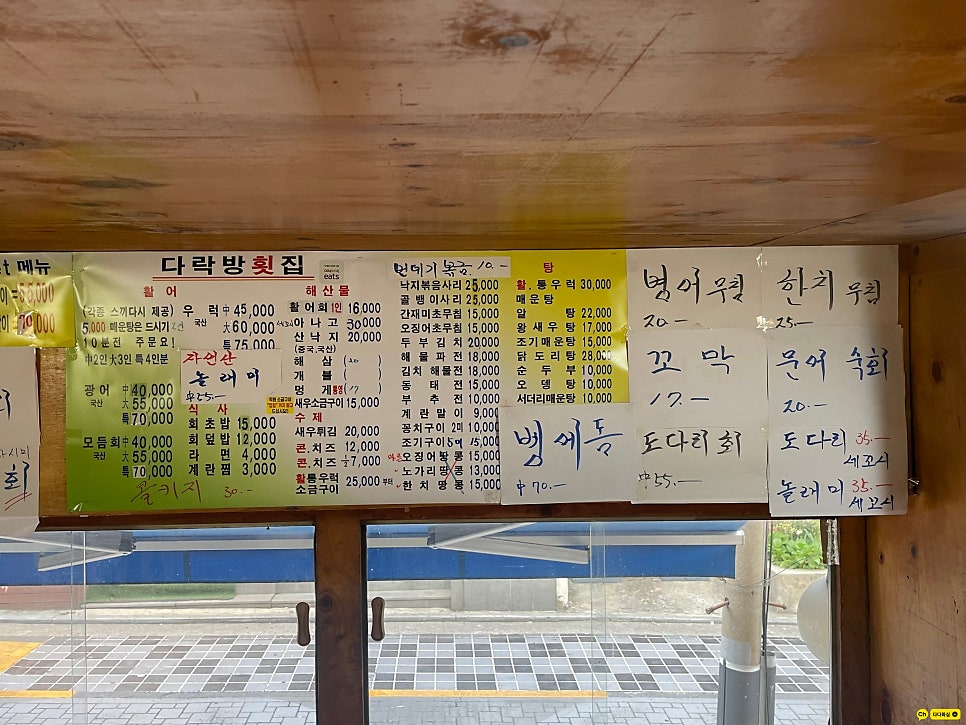 메뉴
다락방횟집
eats
활 어
(각종 스끼다시 제공)
5,000 매운탕은 드시기
10분전 주문요!
中2인 大3인 특4인분
우 럭 中 45,000
국산 大 60,000
특 75,000
자연산
놀래미
中55.-
광 어 中 40,000
국산 大 55,000
특 70,000
모듬회 中 40,000
국산 大 55,000
특 70,000
식 사
회초밥 15,000
회덮밥 12,000
라 면 4,000
계란찜 3,000
콜키지 30.-
해산물
활어회1인 16,000
아나고 30,000
산낙지 20,000
(중국,국산)
해 삼
개 불
멍 게
새우소금구이 15,000
수 제
새우튀김 20,000
콘.치즈 12,000
콘.치즈 1/2 7,000
활통우럭
소금구이 25,000 부터
번데기 볶음 10.-
낙지볶음사리 25,000
골뱅이사리 25,000
간재미초무침 15,000
오징어초무침 15,000
두부김치 20,000
해물파전 18,000
김치해물전 18,000
동태전 15,000
부추전 10,000
계란말이 9,000
꽁치구이 2미 10,000
조기구이 5마 15,000
마른오징어땅콩 15,000
노가리땅콩 13,000
한치땅콩 15,000
탕
활.통우럭 30,000
매운탕
알 탕 22,000
왕새우탕 17,000
조기매운탕 15,000
닭도리탕 28,000
순두부 10,000
오뎅탕 10,000
서더리매운탕 10,000
병어무침
20.-
한치무침
25.-
꼬막
17.-
문어숙회
20.-
뱅에돔
中70.-
도다리회
中55.-
도다리 35.-
세꼬시
놀래미 35.-
세꼬시
회